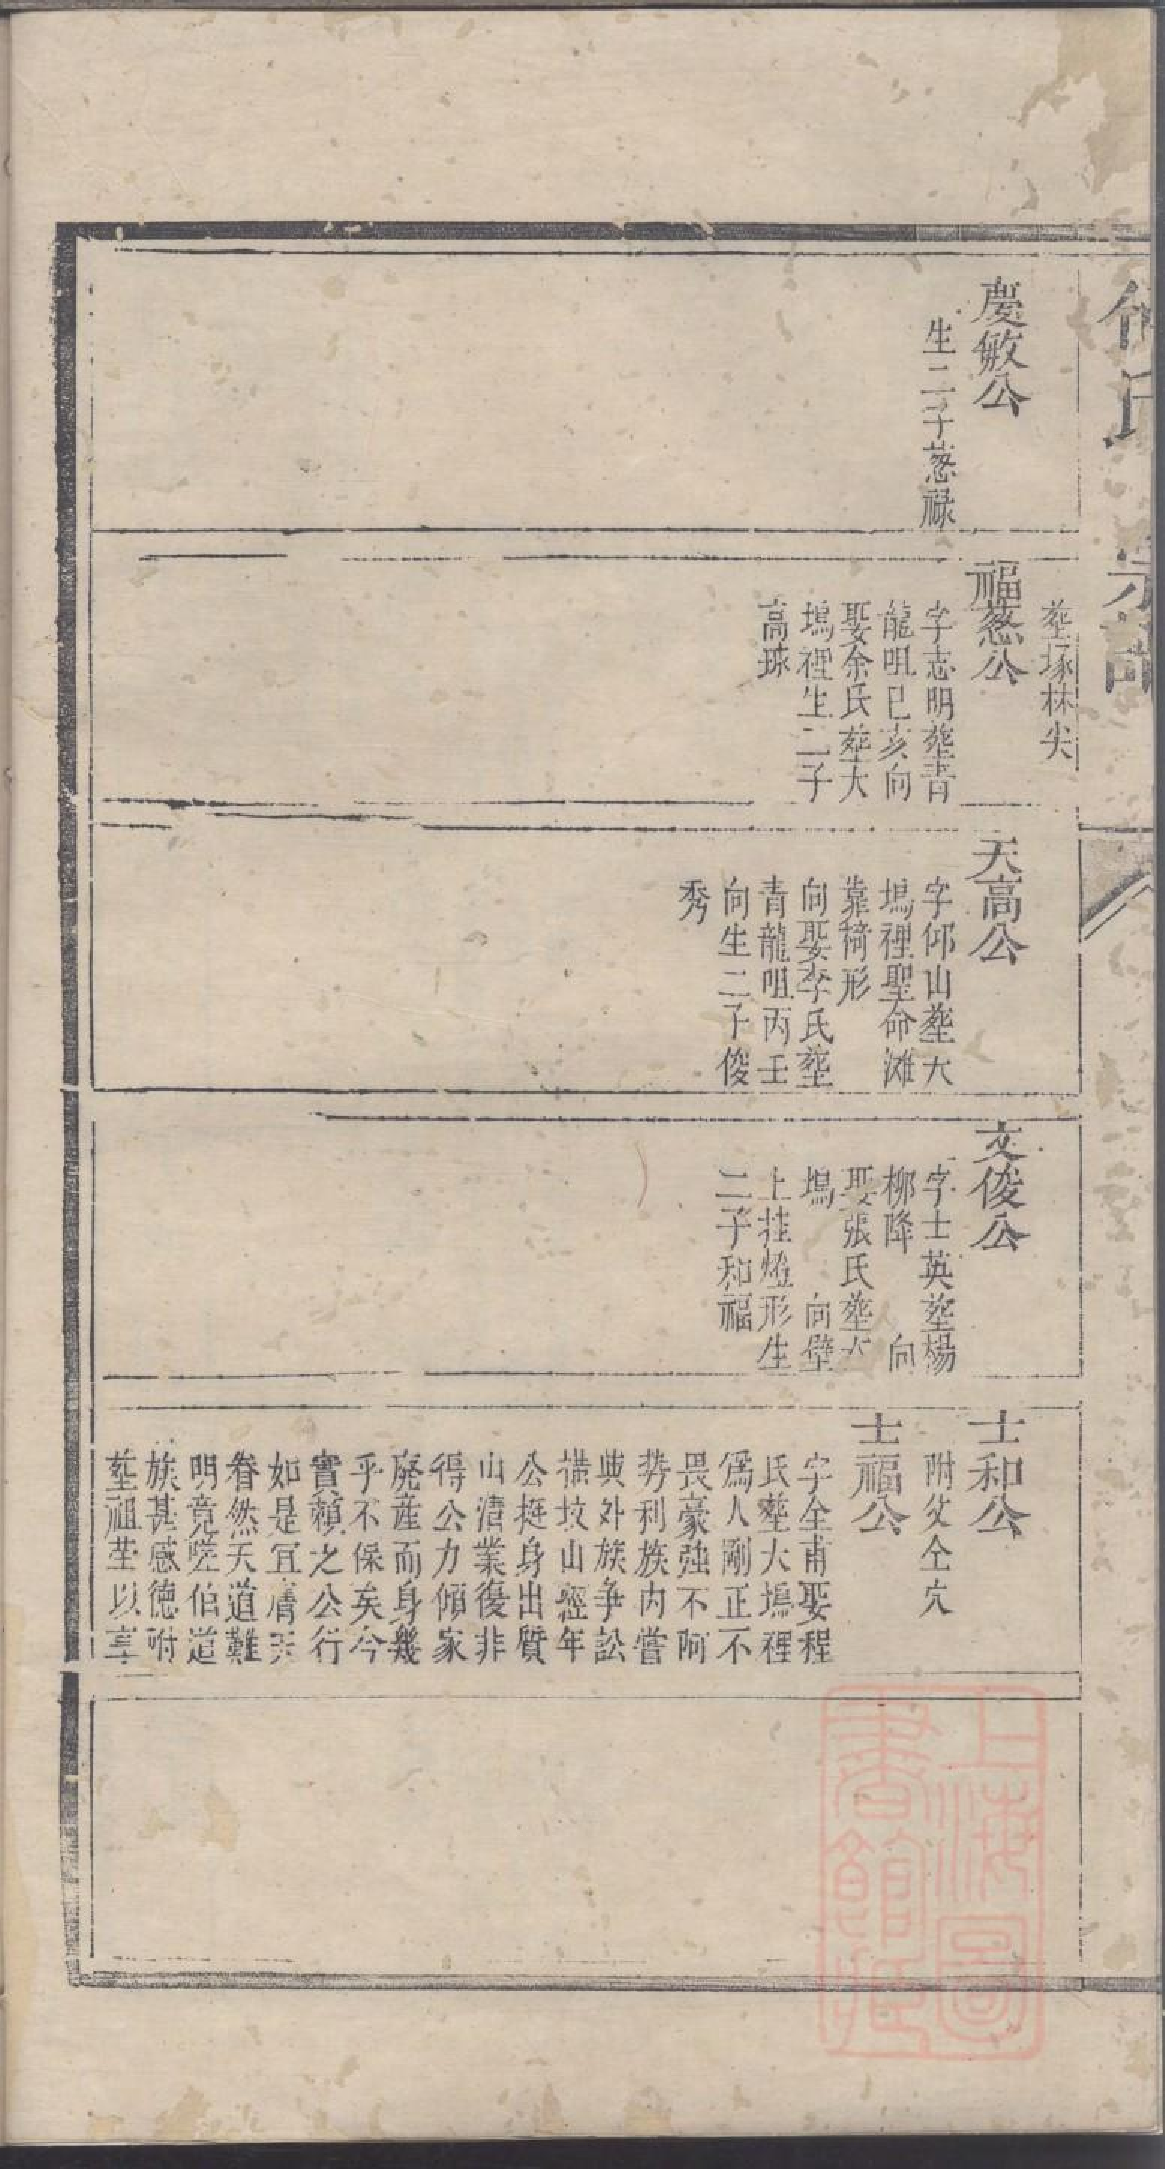 氏宗譜
慶敏公
生二子慈禄
塟塚林尖
福慈公
字志明塟青
龍咀巳亥向
娶余氏塟大
塢裡生二子
高球
天高公
字仰山塟大
塢裡聖命滩
靠椅形
向娶李氏塟
青龍咀丙壬
向生二子俊
秀
文俊公
字士英塟楊
柳降 向
娶張氏塟大
塢 向壁
上挂燈形生
二子和福
士和公
附父仝穴
士福公
字全甫娶程
氏塟大塢裡
為人剛正不
畏豪強不阿
勢利族内嘗
與外族爭訟
橫坟山經年
公挺身出質
山清業復非
得公力傾家
廢產而身幾
乎不保矣今
實賴之公行
如是宜膺天
眷然天道難
明竟嗟伯道
族甚感德附
塟祖塋以享
上海圖書館藏